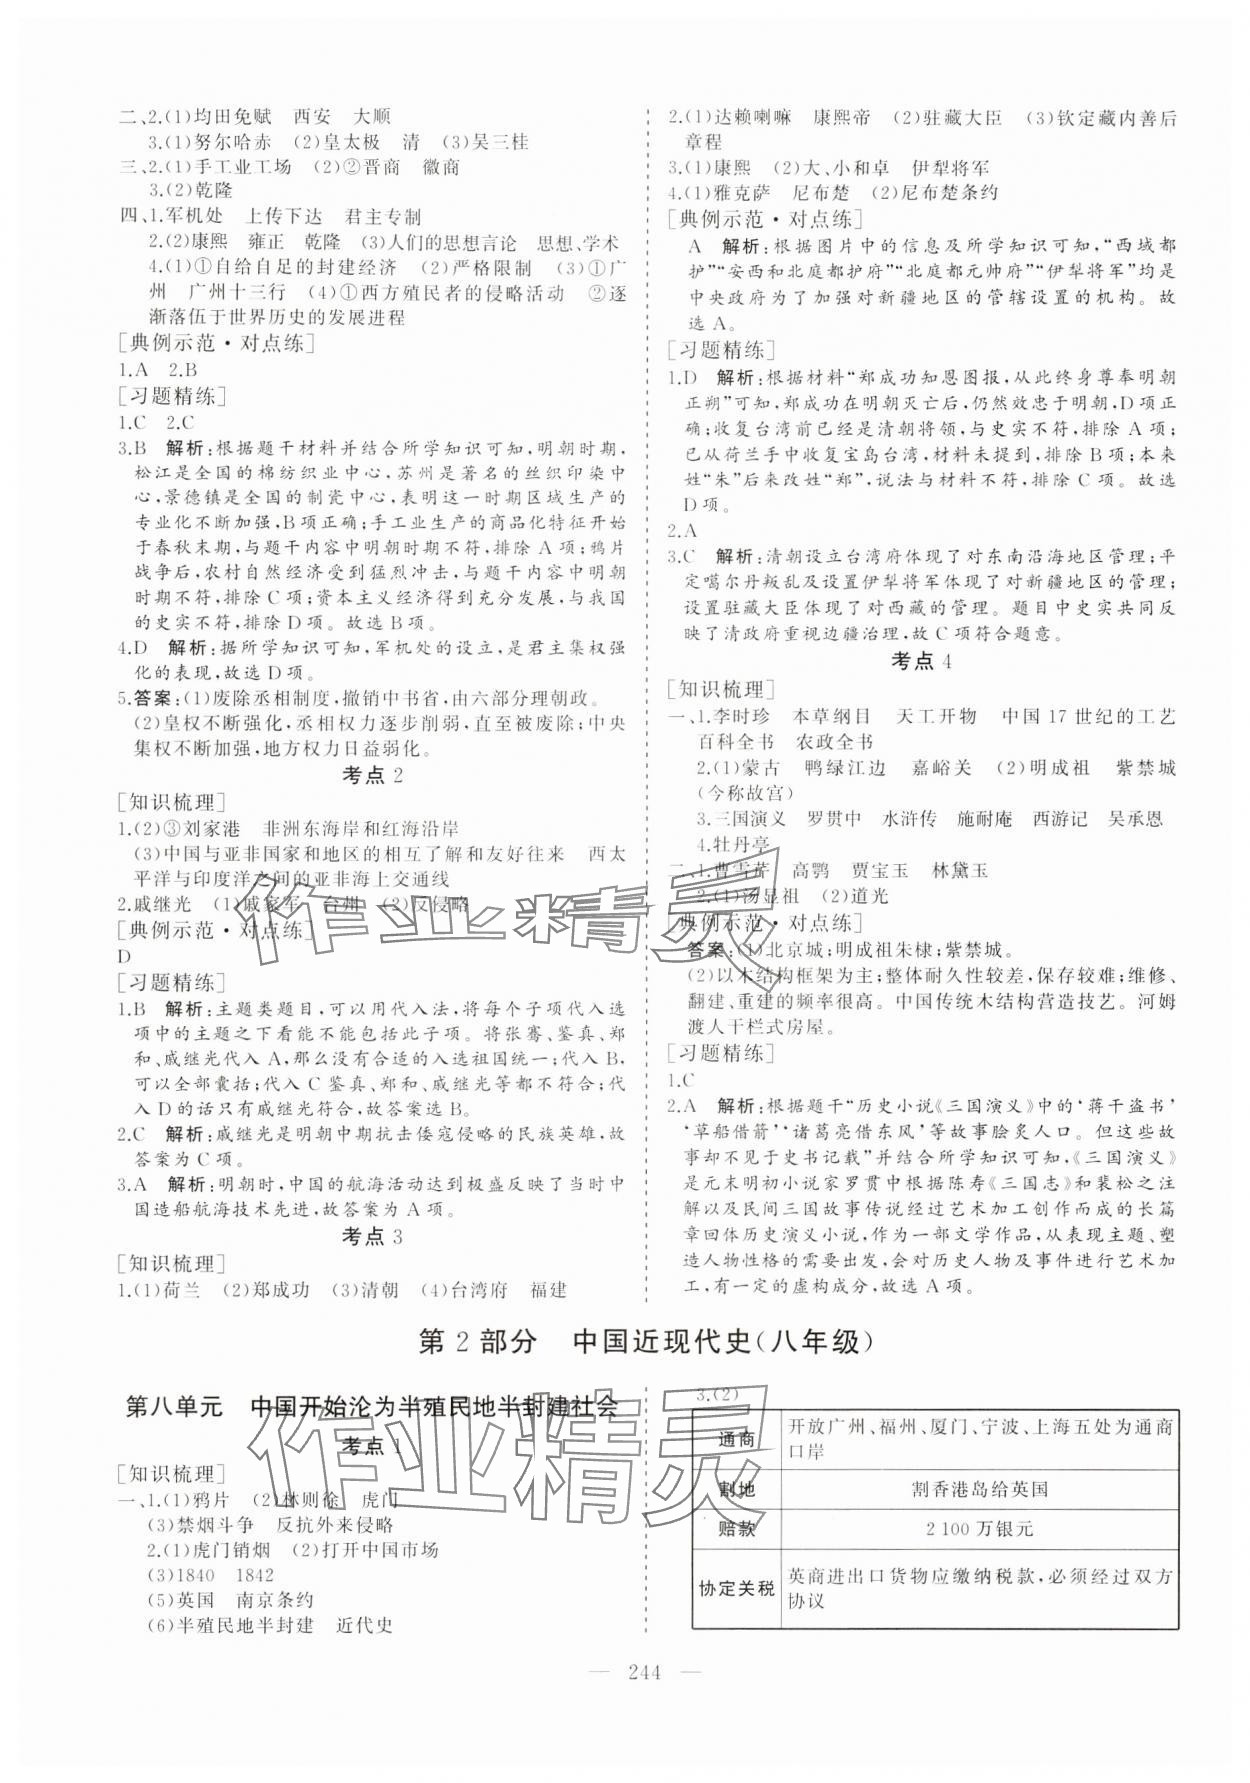 二、2.(1)均田免赋　西安　大顺
3.(1)努尔哈赤　(2)皇太极　清　(3)吴三桂
三、2.(1)手工业工场　(2)②晋商　徽商
3.(2)乾隆
四、1.军机处　上传下达　君主专制
2.(2)康熙　雍正　乾隆　(3)人们的思想言论　思想、学术
4.(1)①自给自足的封建经济　(2)严格限制　(3)①广
州　广州十三行　(4)①西方殖民者的侵略活动　②逐
渐落伍于世界历史的发展进程
[典例示范·对点练]
1.A　2.B
[习题精练]
1.C　2.C
3.B　解析:根据题干材料并结合所学知识可知,明朝时期,
松江是全国的棉纺织业中心,苏州是著名的丝织印染中
心,景德镇是全国的制瓷中心,表明这一时期区域生产的
专业化不断加强,B项正确;手工业生产的商品化特征开始
于春秋末期,与题干内容中明朝时期不符,排除A项;鸦片
战争后,农村自然经济受到猛烈冲击,与题干内容中明朝
时期不符,排除C项;资本主义经济得到充分发展,与我国
的史实不符,排除D项。故选B项。
4.D　解析:据所学知识可知,军机处的设立,是君主集权强
化的表现,故选D项。
5.答案:(1)废除丞相制度,撤销中书省,由六部分理朝政。
(2)皇权不断强化,丞相权力逐步削弱,直至被废除;中央
集权不断加强,地方权力日益弱化。
考点2
[知识梳理]
1.(2)③刘家港　非洲东海岸和红海沿岸
(3)中国与亚非国家和地区的相互了解和友好往来　西太
平洋与印度洋之间的亚非海上交通线
2.戚继光　(1)戚家军　台州　(2)反侵略
[典例示范·对点练]
D
[习题精练]
1.B　解析:主题类题目,可以用代入法,将每个子项代入选
项中的主题之下看能不能包括此子项。将张骞、鉴真、郑
和、戚继光代入A,那么没有合适的入选祖国统一;代入B,
可以全部囊括;代入C鉴真、郑和、戚继光等都不符合;代
入D的话只有戚继光符合,故答案选B。
2.C　解析:戚继光是明朝中期抗击倭寇侵略的民族英雄,故
答案为C项。
3.A　解析:明朝时,中国的航海活动达到极盛反映了当时中
国造船航海技术先进,故答案为A项。
考点3
[知识梳理]
1.(1)荷兰　(2)郑成功　(3)清朝　(4)台湾府　福建
2.(1)达赖喇嘛　康熙帝　(2)驻藏大臣　(3)钦定藏内善后
章程
3.(1)康熙　(2)大、小和卓　伊犁将军
4.(1)雅克萨　尼布楚　(2)尼布楚条约
[典例示范·对点练]
A　解析:根据图片中的信息及所学知识可知,“西域都
护”“安西和北庭都护府”“北庭都元帅府”“伊犁将军”均是
中央政府为了加强对新疆地区的管辖设置的机构。故
选A。
[习题精练]
1.D　解析:根据材料“郑成功知恩图报,从此终身尊奉明朝
正朔”可知,郑成功在明朝灭亡后,仍然效忠于明朝,D项正
确;收复台湾前已经是清朝将领,与史实不符,排除A项;
已从荷兰手中收复宝岛台湾,材料未提到,排除B项;本来
姓“朱”后来改姓“郑”,说法与材料不符,排除C项。故选
D项。
2.A
3.C　解析:清朝设立台湾府体现了对东南沿海地区管理;平
定噶尔丹叛乱及设置伊犁将军体现了对新疆地区的管理;
设置驻藏大臣体现了对西藏的管理。题目中史实共同反
映了清政府重视边疆治理,故C项符合题意。
考点4
[知识梳理]
一、1.李时珍　本草纲目　天工开物　中国17世纪的工艺
百科全书　农政全书
2.(1)蒙古　鸭绿江边　嘉峪关　(2)明成祖　紫禁城
(今称故宫)
3.三国演义　罗贯中　水浒传　施耐庵　西游记　吴承恩
4.牡丹亭
二、1.曹雪芹　高鹗　贾宝玉　林黛玉
2.(1)汤显祖　(2)道光
[典例示范·对点练]
答案:(1)北京城;明成祖朱棣;紫禁城。
(2)以木结构框架为主;整体耐久性较差,保存较难;维修、
翻建、重建的频率很高。中国传统木结构营造技艺。河姆
渡人干栏式房屋。
[习题精练]
1.C
2.A　解析:根据题干“历史小说《三国演义》中的‘蒋干盗书’
‘草船借箭’‘诸葛亮借东风’等故事脍炙人口。但这些故
事却不见于史书记载”并结合所学知识可知,《三国演义》
是元末明初小说家罗贯中根据陈寿《三国志》和裴松之注
解以及民间三国故事传说经过艺术加工创作而成的长篇
章回体历史演义小说,作为一部文学作品,从表现主题、塑
造人物性格的需要出发,会对历史人物及事件进行艺术加
工,有一定的虚构成分,故选A项。
第2部分　中国近现代史(八年级)
第八单元　中国开始沦为半殖民地半封建社会
考点1
[知识梳理]
一、1.(1)鸦片　(2)林则徐　虎门
(3)禁烟斗争　反抗外来侵略
2.(1)虎门销烟　(2)打开中国市场
(3)1840　1842
(5)英国　南京条约
(6)半殖民地半封建　近代史
3.(2)
通商　开放广州、福州、厦门、宁波、上海五处为通商
口岸
割地　割香港岛给英国
赔款　2 100万银元
协定关税　英商进出口货物应缴纳税款,必须经过双方
协议
— 244 —
作业精灵
作业精灵